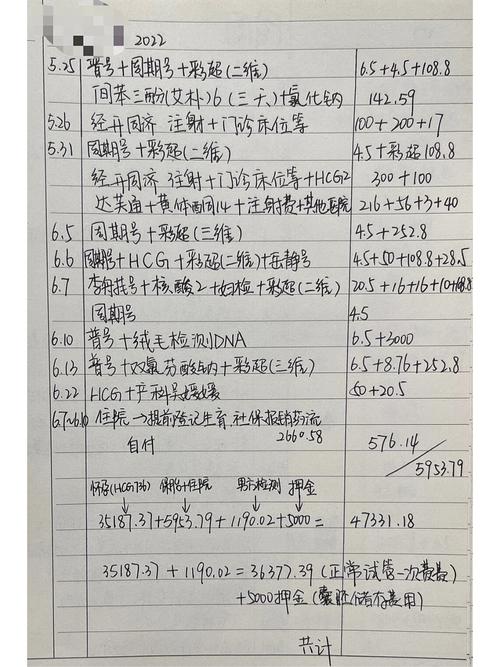 2022
5.25 普号+周期号+彩超(二维) 6.5+4.5+108.8
间苯三酚(艾朴)6(三天)+氯化钠 142.59
5.26 经开同济 注射+门诊床位等 100+200+17
5.31 周期号+彩超(二维) 4.5+彩超108.8
经开同济 注射+门诊床位等+HCG2 300+100
达芙通+黄体酮14+注射费+其他医院 216+56+3+40
6.5 周期号+彩超(三维) 4.5+252.8
6.6 周期号+HCG+彩超(二维)+岳静号 4.5+50+108.8+28.5
6.7 李舟挂号+核酸2+妇检+彩超(二维) 20.5+16+16+10+108.8
周期号 4.5
6.10 普号+绒毛检测DNA 6.5+3000
6.13 普号+双氯芬酸钠+彩超(三维) 6.5+8.76+252.8
6.22 HCG+产科吴媛媛 50+20.5
6.7~6.10 住院→提前登记生育社保报销药流
自付 2660.58 576.14
/5953.79
怀孕(HCG736) 保胎+住院 男方检测 押金
35187.37+5953.79+1190.02+5000= 47331.18
35187.37+1190.02=36377.39(正常试管一次费费)
+5000押金(囊胚储存费用)
共计